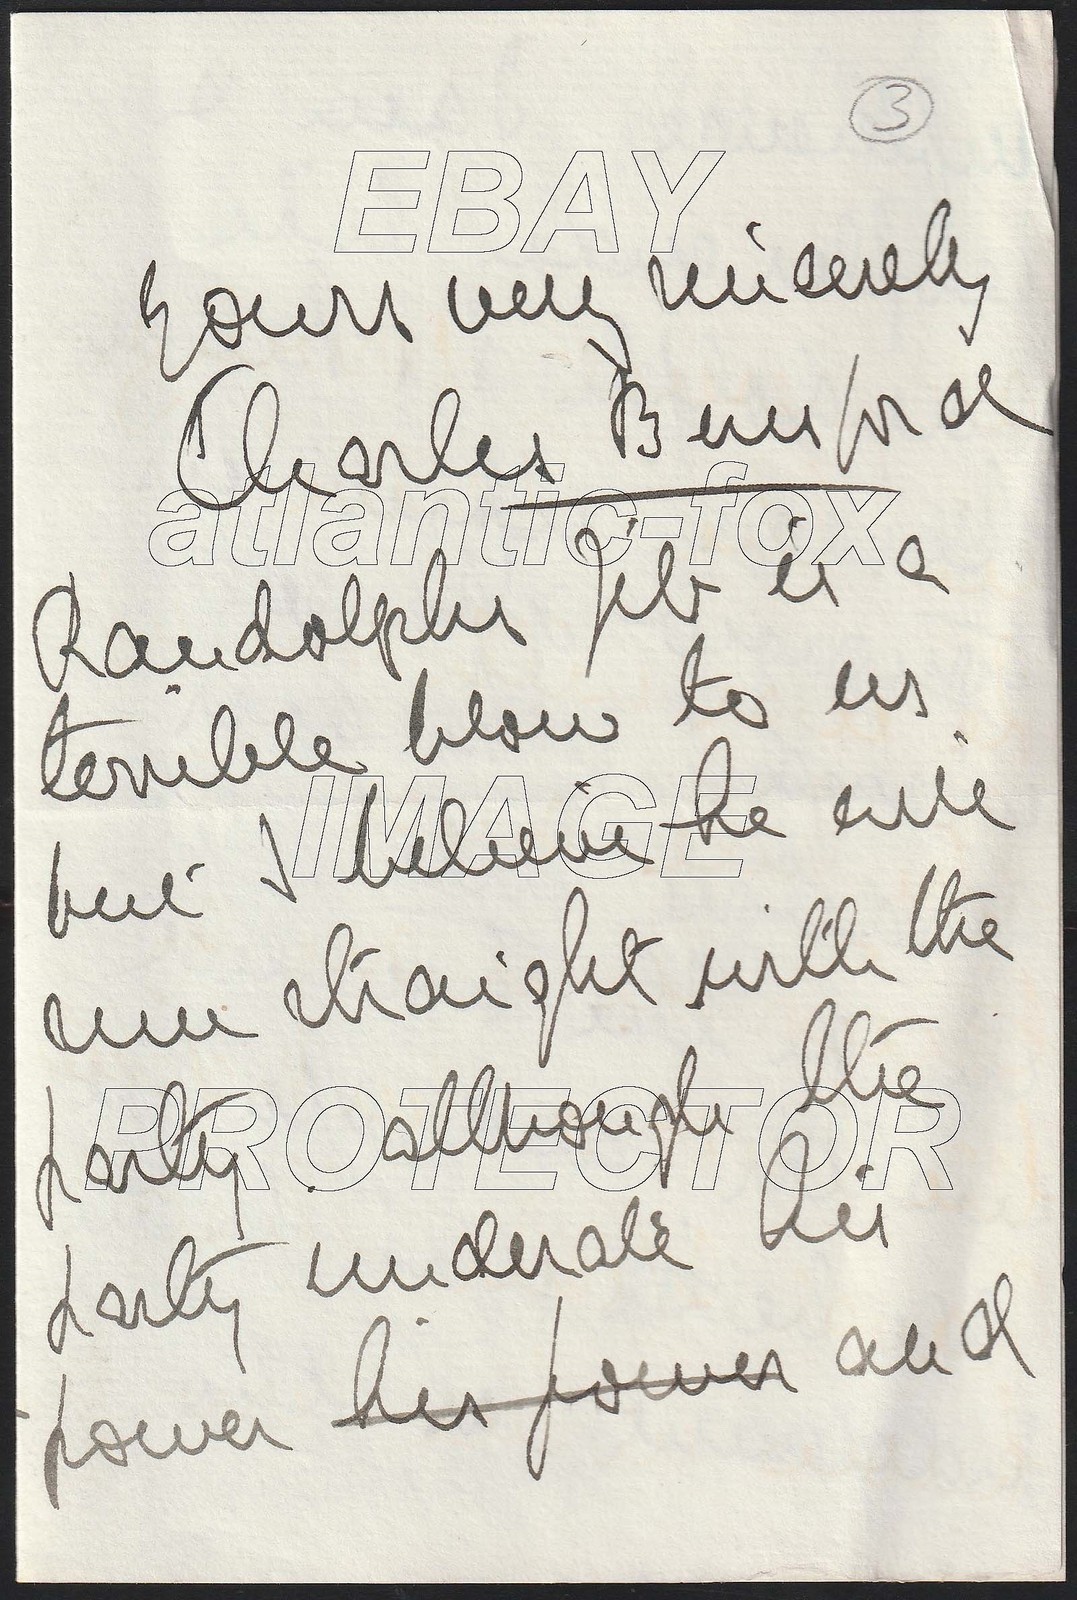 3
EBAY
yours very sincerely
Charles Beresford
atlantic-fox
Randolphs jib is a
terrible blow to us
but I believe he will
IMAGE
run straight with the
party although the
PROTECTOR
party underate his
power his power and